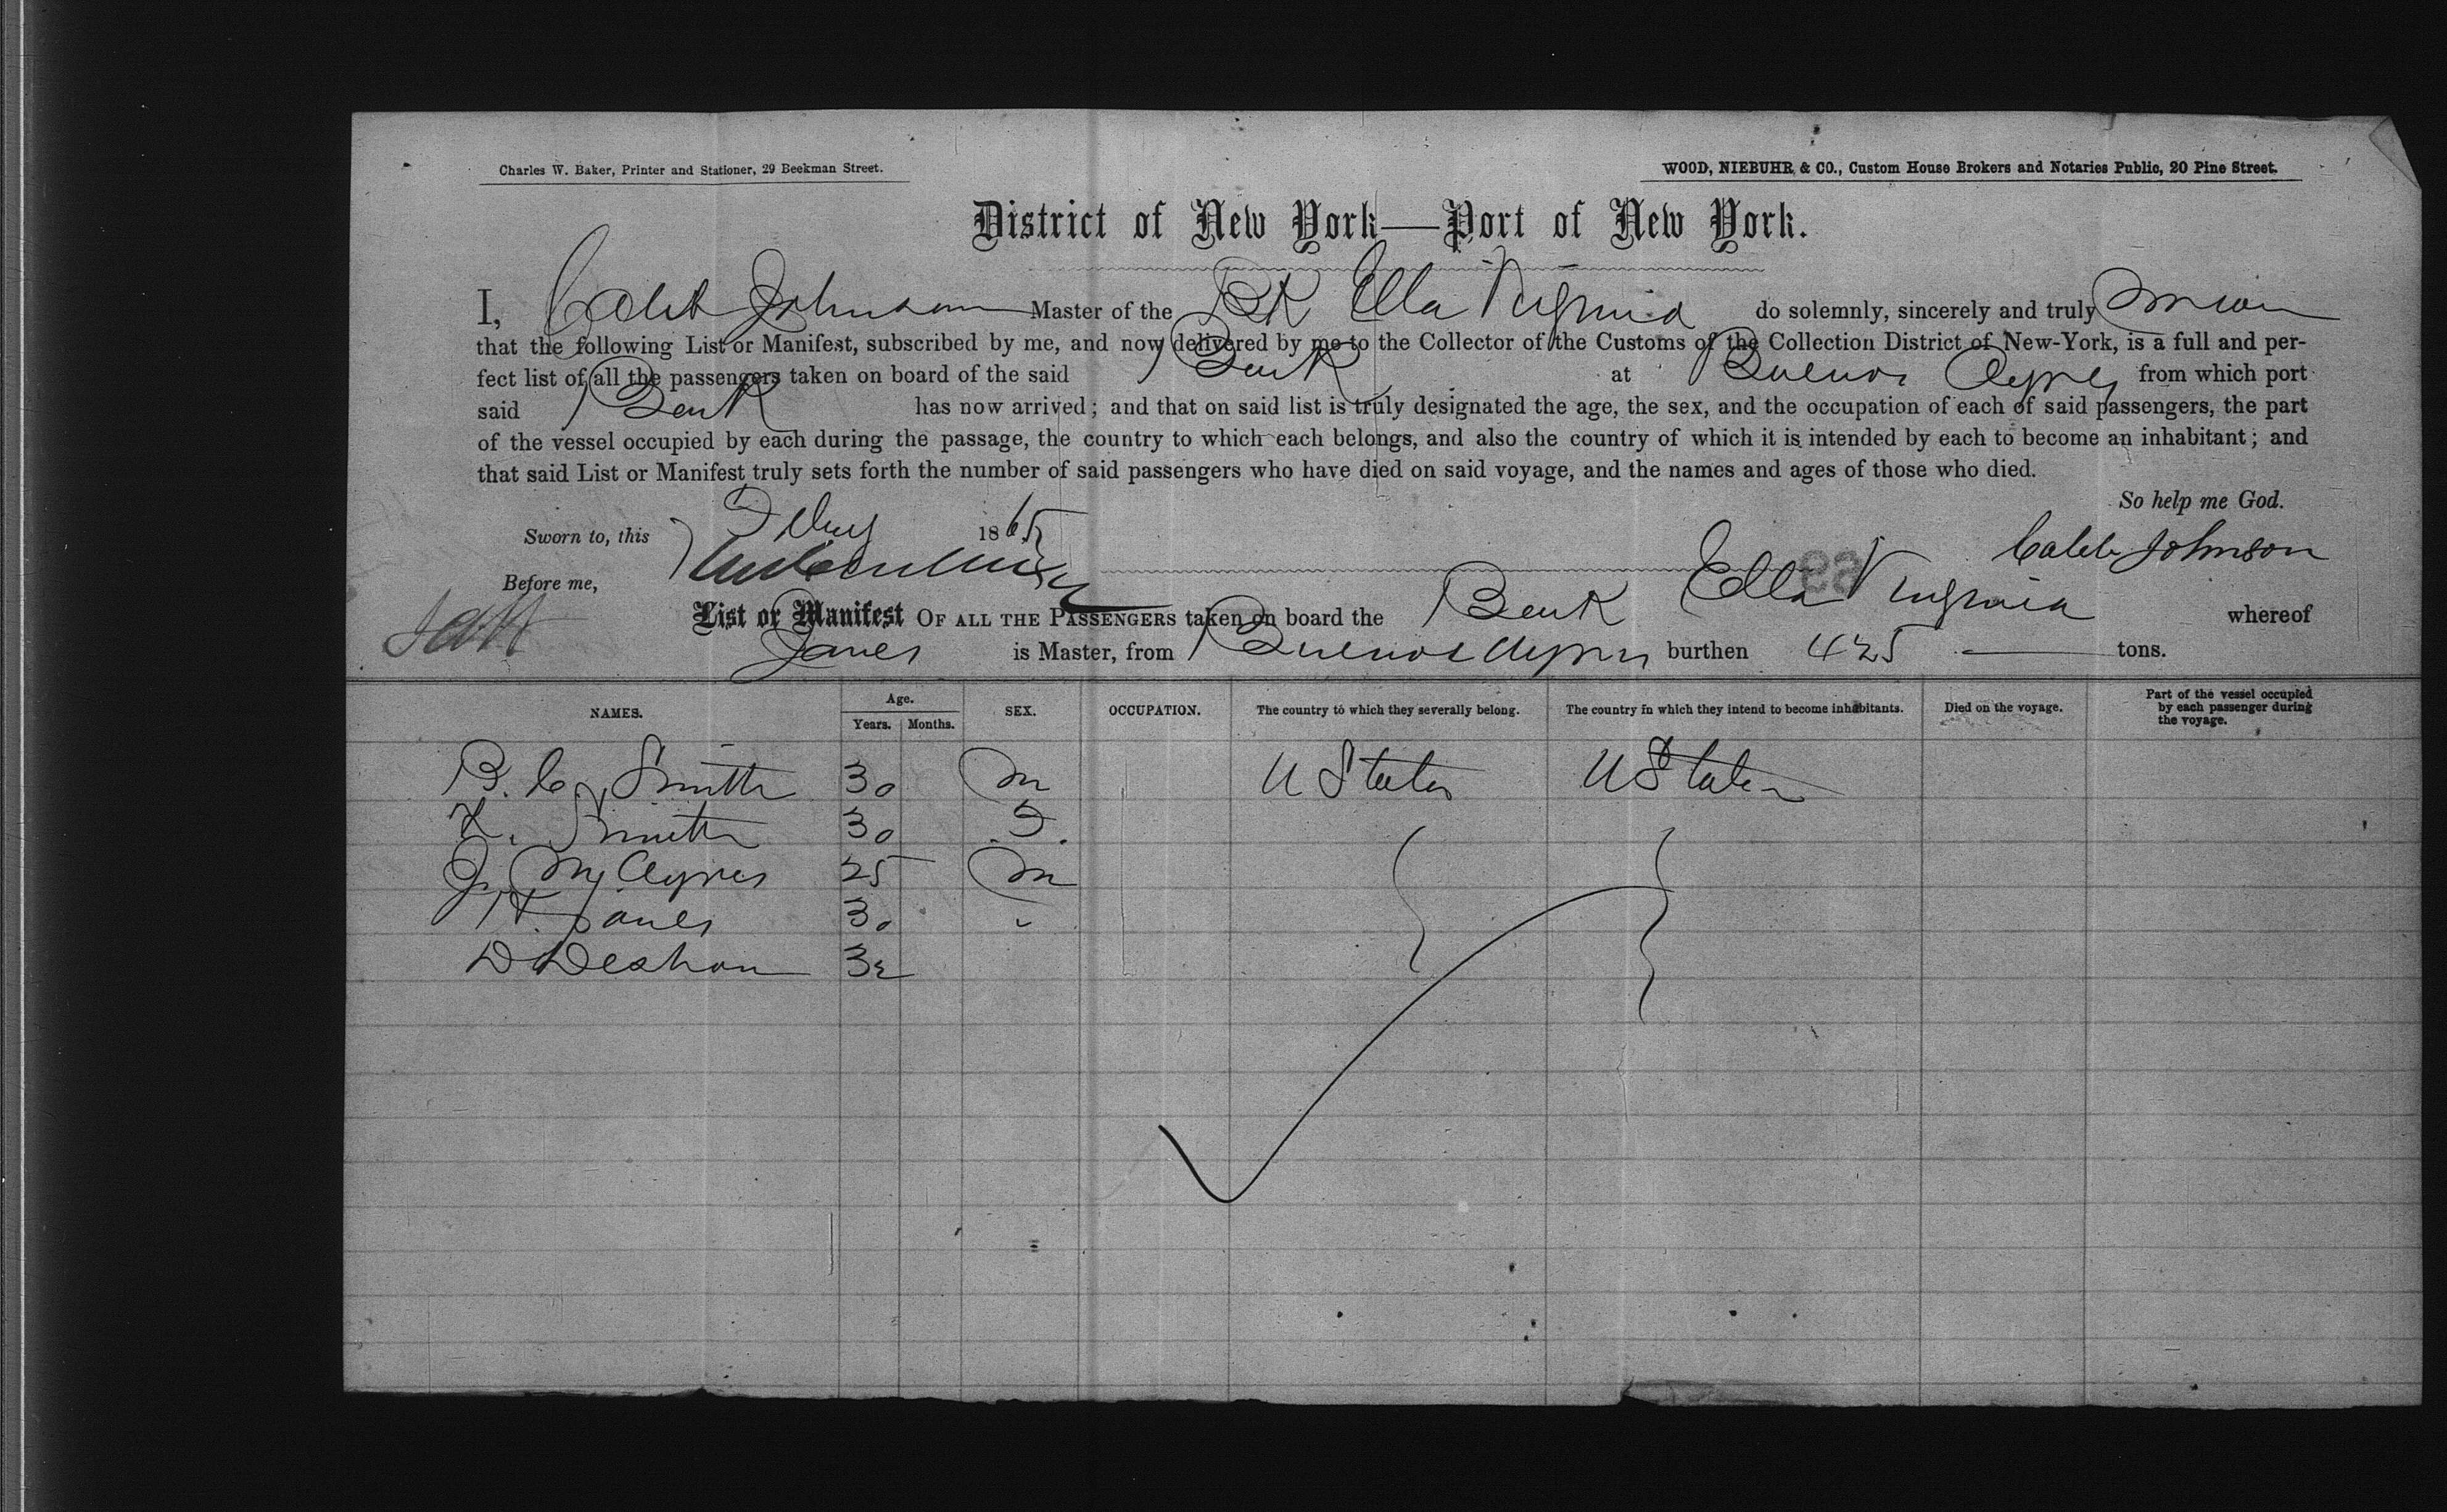 Charles W. Baker, Printer and Stationer, 29 Beekman Street.
WOOD, NIEBUHR & CO., Custom House Brokers and Notaries Public, 20 Pine Street.
District of New York—Port of New York.
I, Caleb Johnson Master of the Bk Ella Virginia do solemnly, sincerely and truly swear
that the following List or Manifest, subscribed by me, and now delivered by me to the Collector of the Customs of the Collection District of New-York, is a full and per-
fect list of all the passengers taken on board of the said Bark at Buenos Ayres from which port
said Bark has now arrived; and that on said list is truly designated the age, the sex, and the occupation of each of said passengers, the part
of the vessel occupied by each during the passage, the country to which each belongs, and also the country of which it is intended by each to become an inhabitant; and
that said List or Manifest truly sets forth the number of said passengers who have died on said voyage, and the names and ages of those who died.
So help me God.
Sworn to, this 1865
Caleb Johnson
Before me,
List or Manifest OF ALL THE PASSENGERS taken on board the Bark Ella Virginia whereof
is Master, from Buenos Ayres burthen 425 tons.
NAMES. Age. Years. Months. SEX. OCCUPATION. The country to which they severally belong. The country in which they intend to become inhabitants. Died on the voyage. Part of the vessel occupied by each passenger during the voyage.
B. C. Smith 30 M U States U States
Smith 30 F.
J. M. Ayres 25 M
H. Janes 30 "
D Deshon 32